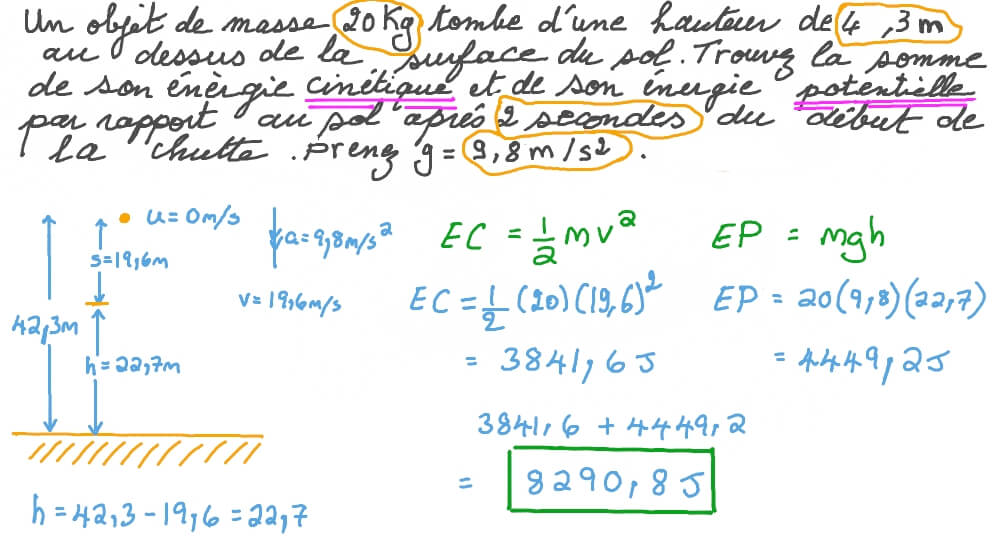 Un objet de masse 20 Kg tombe d'une hauteur de 4 ,3 m
au dessus de la surface du sol. Trouvez la somme
de son énèrgie cinétique et de son énergie potentielle
par rapport au sol après 2 secondes du début de
la chutte . prenez g = 9,8 m / s² .
u = 0 m/s
s = 19,6m
a = 9,8 m/s²
v = 19,6 m/s
42,3m
h = 22,7m
h = 42,3 - 19,6 = 22,7
EC = 1/2 mv²
EC = 1/2 (20) (19,6)²
= 3841,6 J
EP = mgh
EP = 20(9,8)(22,7)
= 4449,2J
3841,6 + 4449,2
= 8290,8 J